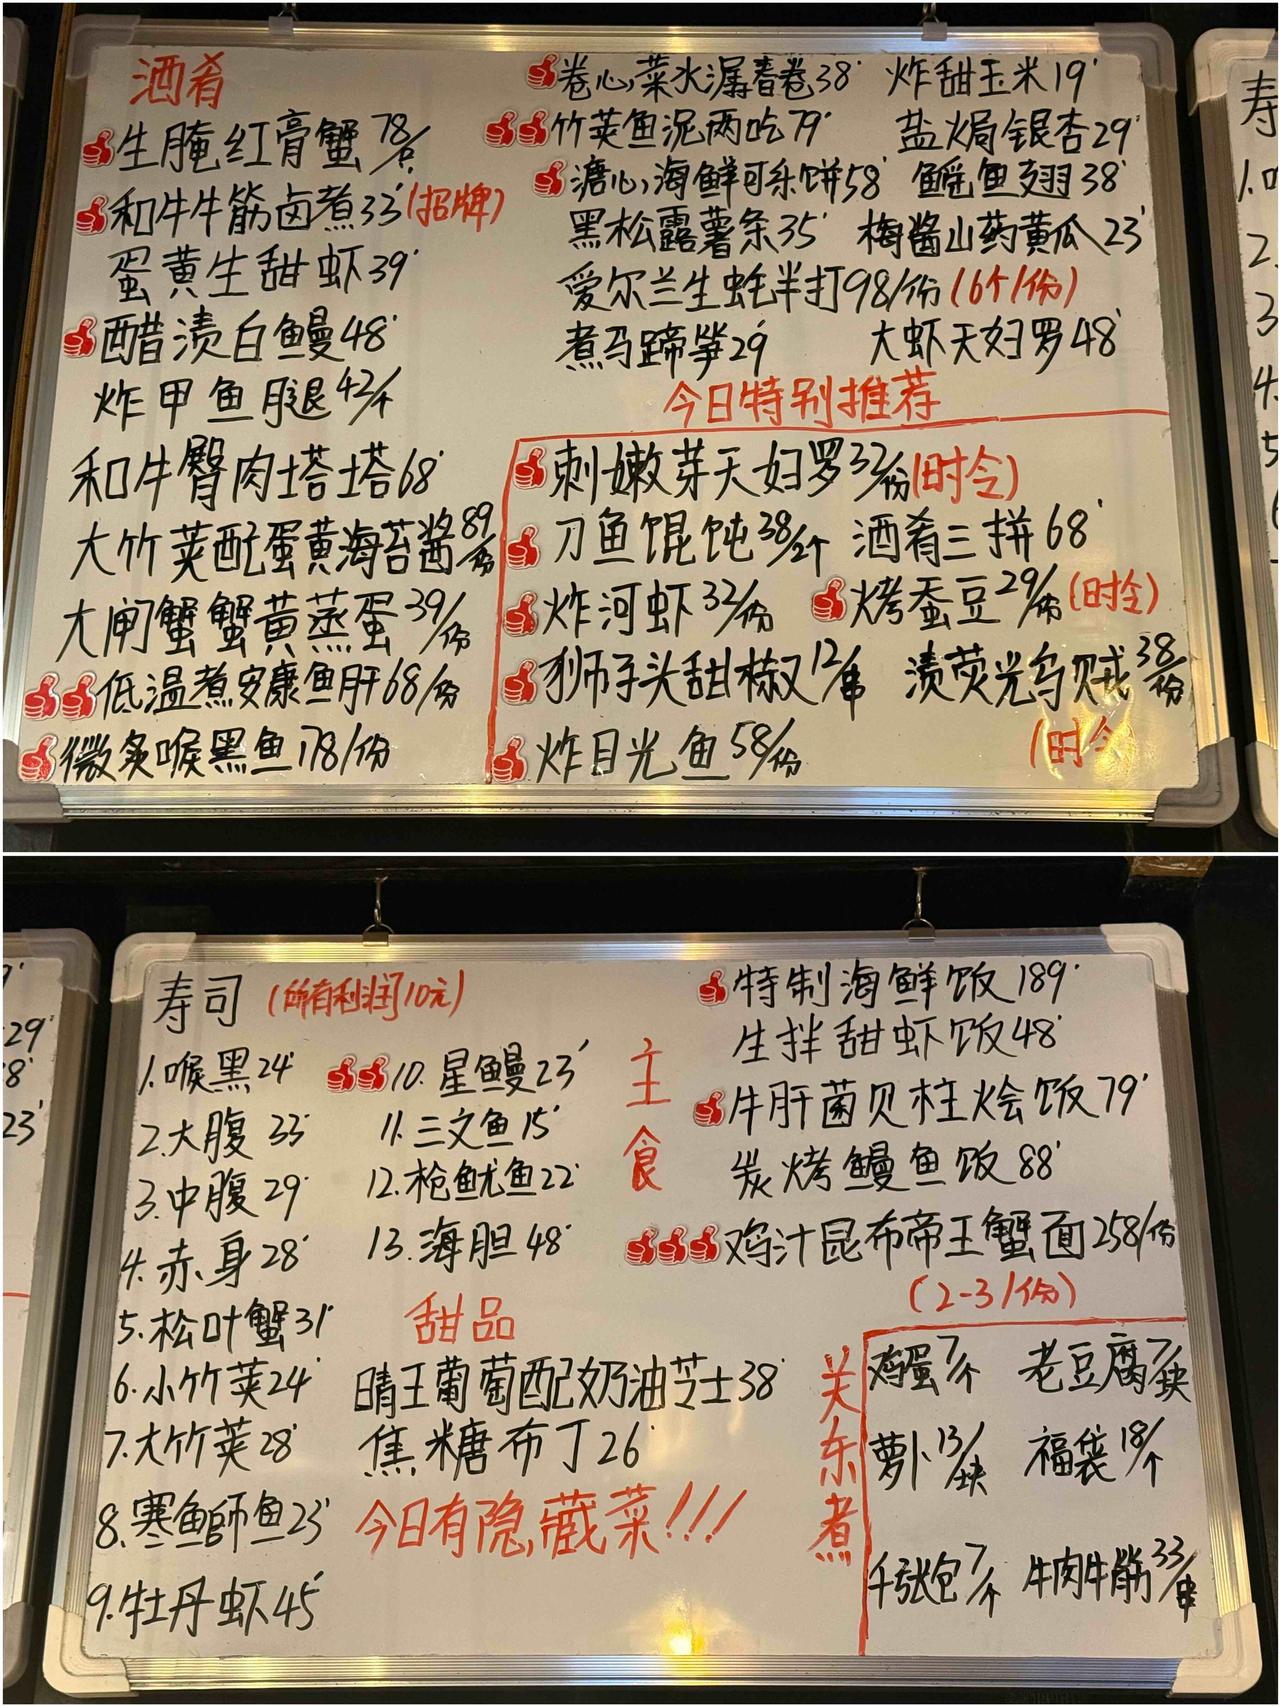 酒肴
生腌红膏蟹78/只
和牛牛筋卤煮33(招牌)
蛋黄生甜虾39
醋渍白鳗48
炸甲鱼腿42/个
和牛臀肉塔塔68
大竹荚配蛋黄海苔酱89/份
大闸蟹蟹黄蒸蛋39/份
低温煮安康鱼肝68/份
微炙喉黑鱼178/份
卷心菜水潺春卷38 炸甜玉米19
竹荚鱼泥两吃79 盐焗银杏29
溏心海鲜可乐饼58 鳐鱼翅38
黑松露薯条35 梅酱山药黄瓜23
爱尔兰生蚝半打98/份(6个/份)
煮马蹄笋29 大虾天妇罗48
今日特别推荐
刺嫩芽天妇罗32/份(时令)
刀鱼馄饨38/2个 酒肴三拼68
炸河虾32/份 烤蚕豆29/份(时令)
狮子头甜椒12/串 渍荧光乌贼38/份
(时令
炸目光鱼58/份
29
8
23
寿
1.
2.
3
4.
5
寿司(所有利润10元)
1.喉黑24
2.大腹33
3.中腹29
4.赤身28
5.松叶蟹31
6.小竹荚24
7.大竹荚28
8.寒鰤鱼23
9.牡丹虾45
10.星鳗23
11.三文鱼15
12.枪鱿鱼22
13.海胆48
甜品
晴王葡萄配奶油芝士38
焦糖布丁26
今日有隐藏菜!!!
主食
特制海鲜饭189
生拌甜虾饭48
牛肝菌贝柱烩饭79
炭烤鳗鱼饭88
鸡汁昆布帝王蟹面258/份
(2-3/份)
关东煮
鸡蛋7/个 老豆腐7/块
萝卜13/块 福袋18/个
千张包7/个 牛肉牛筋33/串